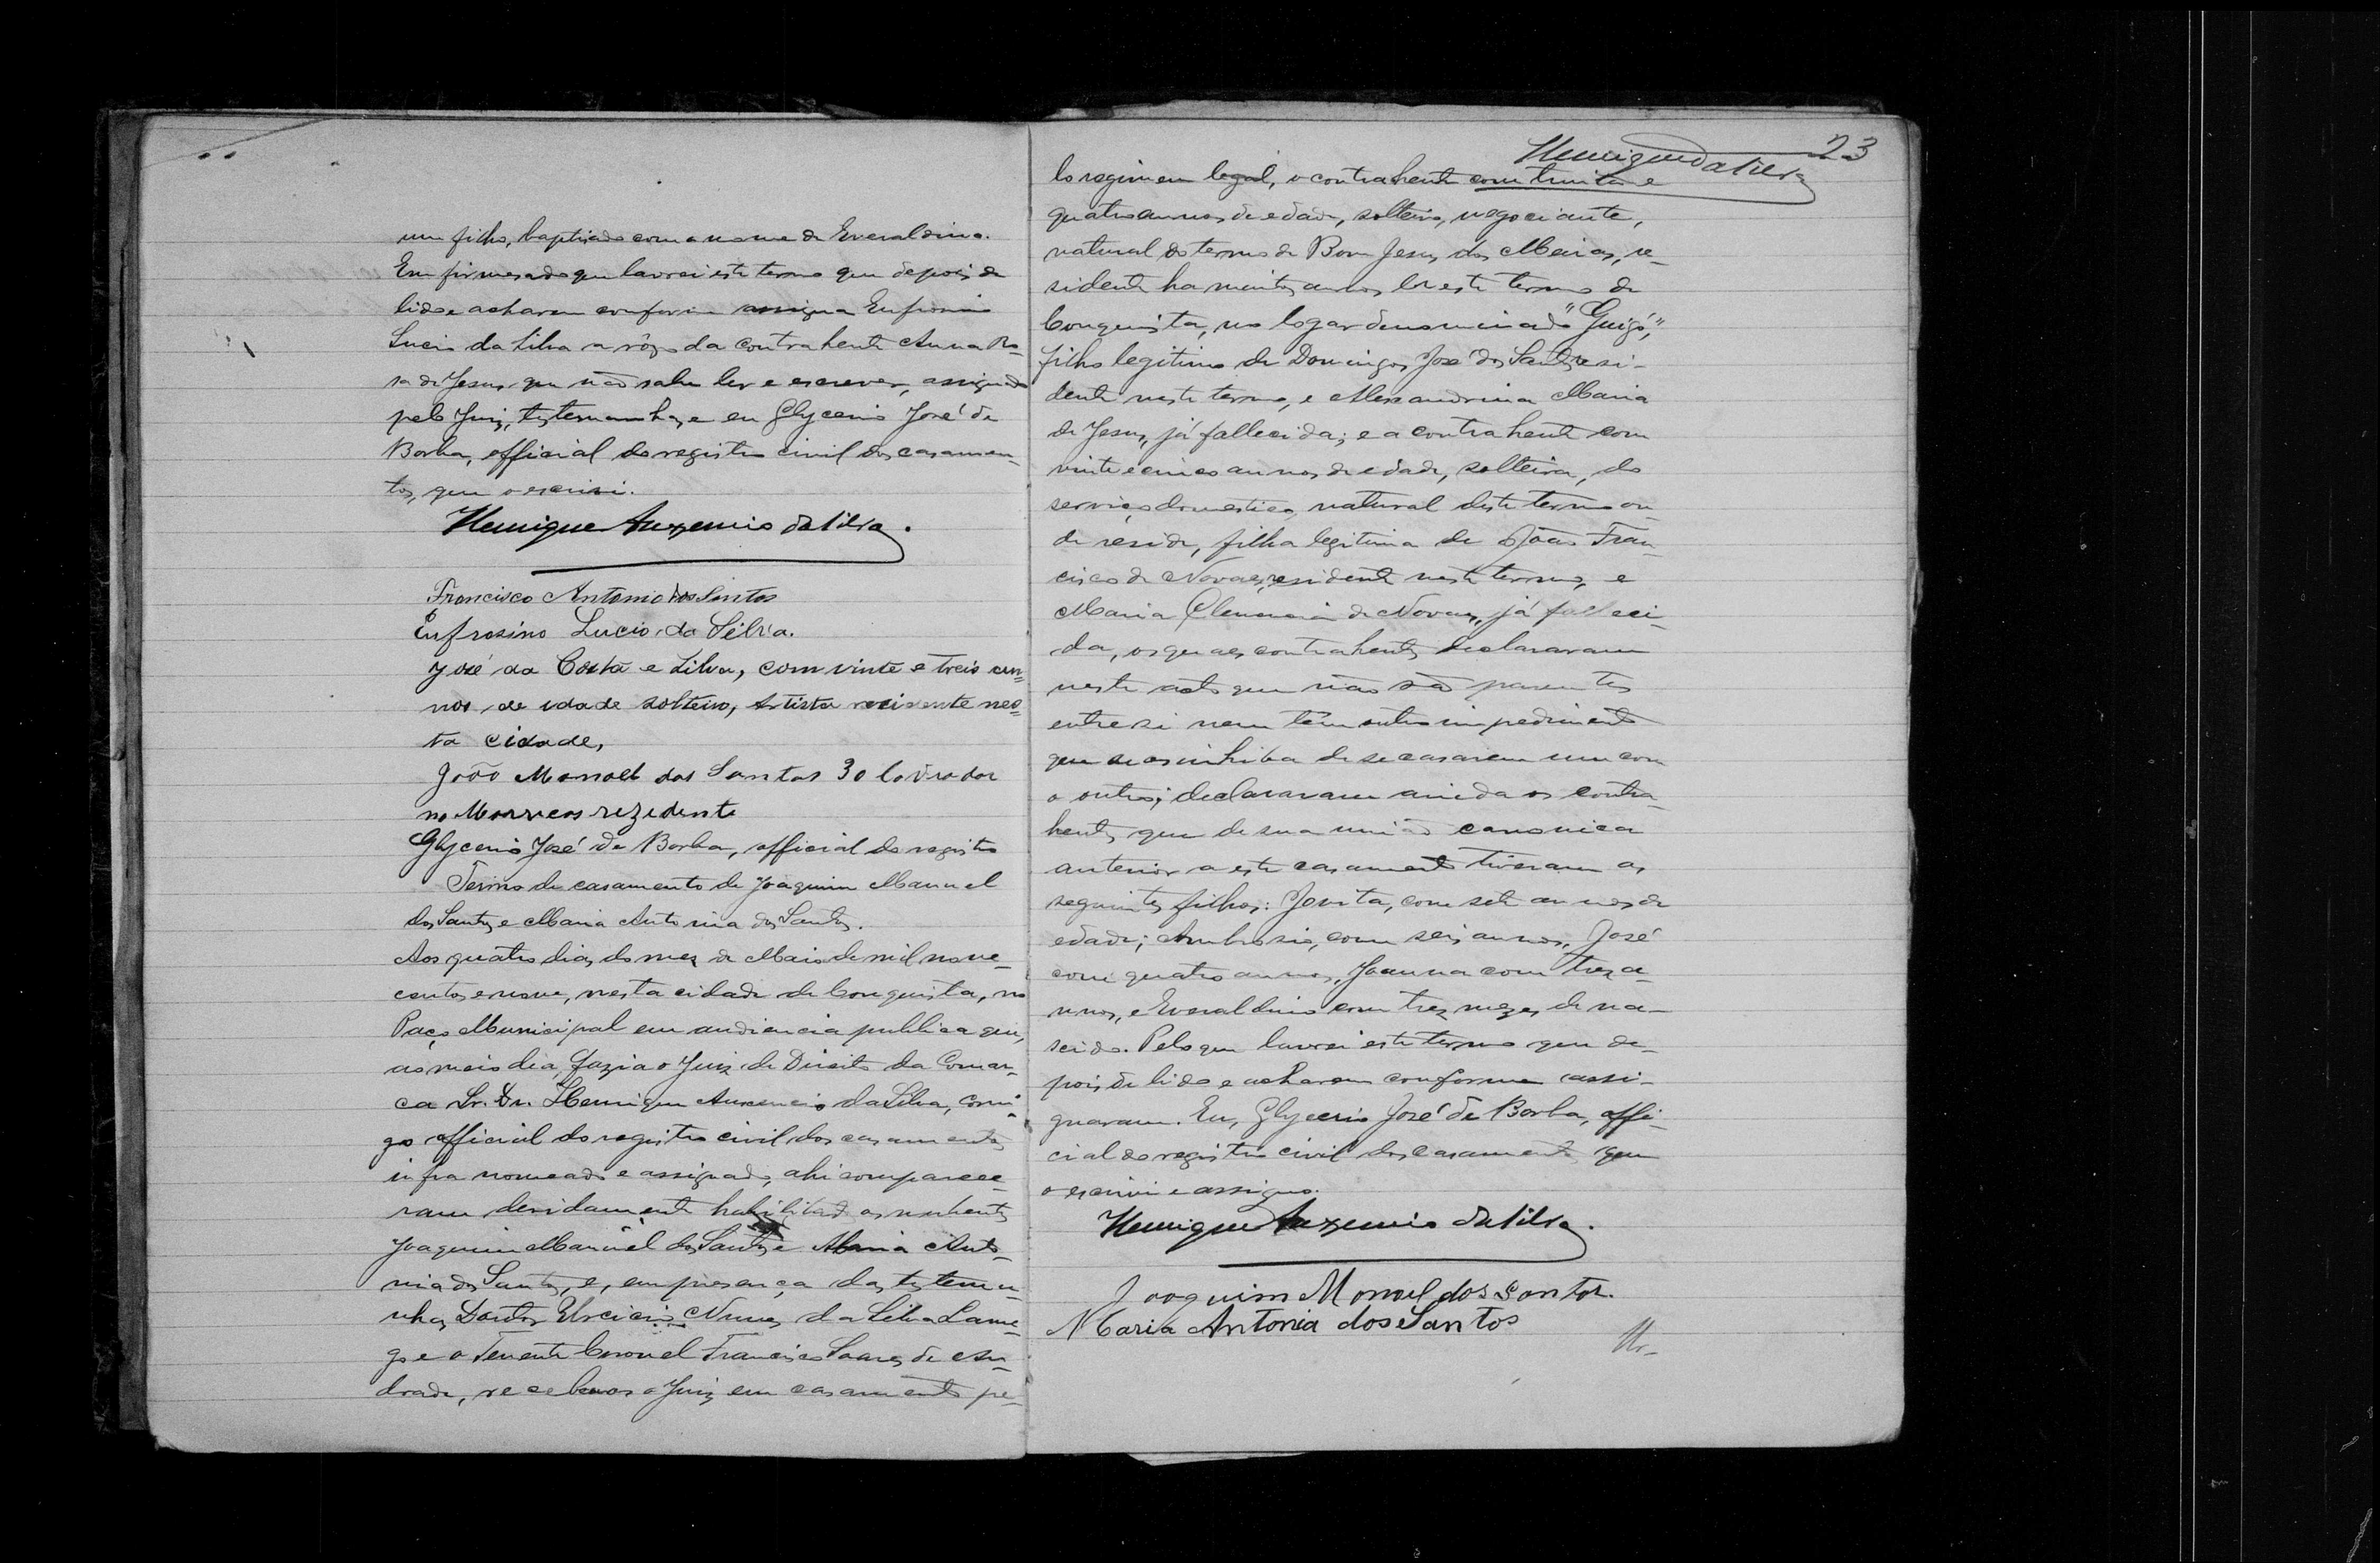 um filho, baptisado com o nome de Everaldino.
Em firmesa do que lavrei este termo que depois de
lido e acharem conforme assigna Eufrosino
Lucio da Silva a rôgo da contrahente Anna Ro-
sa de Jesus que não sabe ler e escrever, assignado
pelo Juiz, testemunhas e eu Glycerio José de
Borba, official do registro civil dos casamen-
tos, que o escrivi.
Henrique Auxencio da Silva.
Francisco Antonio dos Santos
Eufrosino Lucio da Silva.
José da Costa e Silva, com vinte e treis an-
nos de idade solteiro, Artista rezidente nes-
ta cidade,
João Manoel dos Santos 30 lavrador
no rezidente
Glycerio José de Borba, official do registro
Termo de casamento de Joaquim Manuel
dos Santos e Maria Antonia dos Santos.
Aos quatro dias do mez de Maio de mil nove-
centos e nove, nesta cidade de Conquista, no
Paço Municipal em audiencia publica que,
ao meio dia, fazia o Juiz de Direito da Comar-
ca Sr. Dr. Henrique Auxencio da Silva, comi-
go official do registro civil dos casamentos
infra nomeado e assignado, ahi comparece-
ram devidamente habilitados os nubentes
Joaquim Manuel dos Santos e Maria Anto-
nia dos Santos, e, em presença das testemu-
nhas Doutor Nunes da Silva Lame-
go e o Tenente Coronel Francisco Soares de An-
drade, recebeu os o Juiz em casamento pe-
23
Henrique da Silva
lo regimem legal, o contrahente com trinta e
quatro annos de edade, solteiro, negociante,
natural do termo de Bom Jesus dos Meiras, re-
sidente ha muitos annos neste termo de
Conquista, no logar denominado "Guigó,"
filho legitimo de Domingos José dos Santos resi-
dente neste termo, e Alexandrina Maria
de Jesus, já fallecida; e a contrahente com
vinte e cinco annos de edade, solteira, do
serviço domestico, natural deste termo on-
de reside, filha legitima de João Fran-
cisco de Novaes, residente neste termo, e
Maria Clemencia de Novaes, já falleci-
da, os quaes contrahentes declararam
neste acto que não são parentes
entre si nem têm outro impedimento
que os inhiba de se casarem um com
o outro; declararam ainda os contra-
hentes que de sua união canonica
anterior a este casamento tiveram os
seguintes filhos: Jovita, com sete annos de
edade; Ambrosio, com seis annos, José
com quatro annos, Joanna com trez a-
nnos, e Everaldino com trez mezes de na-
scido. Pelo que lavrei este termo que de-
pois de lido e acharem conforme assi-
gnaram. Eu, Glycerio José de Borba, offi-
cial do registro civil dos casamentos que
o escrivi e assigno.
Henrique Auxencio da Silva.
Joaquim Manoel dos Santos.
Maria Antonia dos Santos